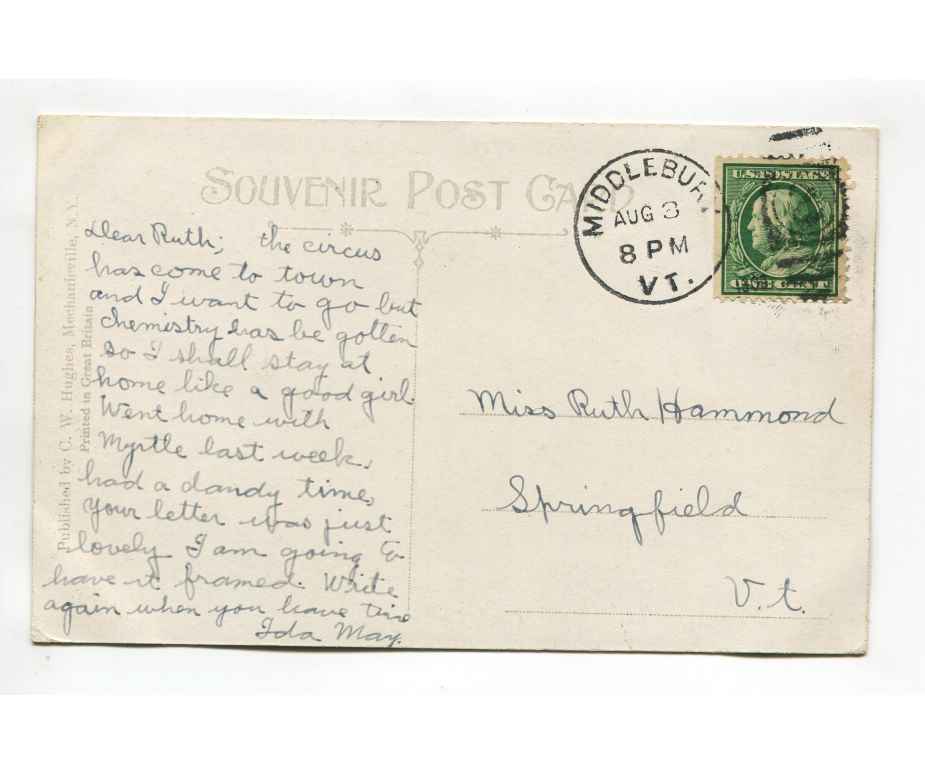 SOUVENIR POST CARD
MIDDLEBURY
AUG 3
8 PM
VT.
U.S. POSTAGE
Dear Ruth; the circus
has come to town
and I want to go but
chemistry has be gotten
so I shall stay at
home like a good girl.
Went home with
Myrtle last week,
had a dandy time,
Your letter was just
lovely I am going to
have it framed. Write
again when you have time
Ida May.
Miss Ruth Hammond
Springfield
V.t.
Published by C. W. Hughes, Mechanicville, N.Y.
Printed in Great Britain